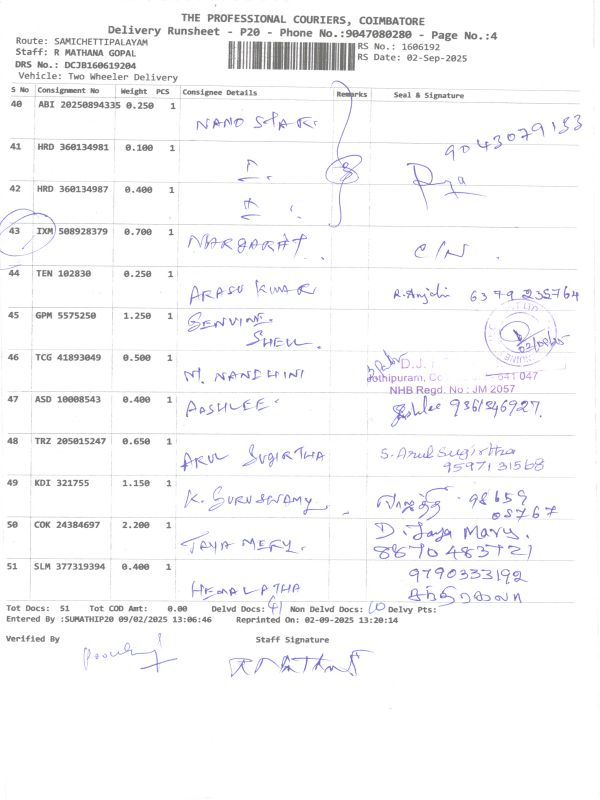 THE PROFESSIONAL COURIERS, COIMBATORE
Delivery Runsheet - P20 - Phone No.:9047080280 - Page No.:4
Route: SAMICHETTIPALAYAM
RS No.: 1606192
Staff: R MATHANA GOPAL
RS Date: 02-Sep-2025
DRS No.: DCJB160619204
Vehicle: Two Wheeler Delivery
S No Consignment No Weight PCS Consignee Details Remarks Seal & Signature
40 ABI 20250894335 0.250 1 NANO STAR.
9043079133
41 HRD 360134981 0.100 1
42 HRD 360134987 0.400 1
43 IXM 508928379 0.700 1 MARGARAT. C/N.
44 TEN 102830 0.250 1 ARASU KUMAR R. Anjali 6379235764
45 GPM 5575250 1.250 1 GENVINE
SHELL. 02/09/25
46 TCG 41893049 0.500 1 M. NANDHINI D.J.
641 047
NHB Regd. No : JM 2057
47 ASD 10008543 0.400 1 AASHLEE. Ashlee 9361546927.
48 TRZ 205015247 0.650 1 ARUL SUGIRTHA S. Arul Sugirtha
9597131568
49 KDI 321755 1.150 1 K. GURUSWAMY. 98659
08767
50 COK 24384697 2.200 1 JAYA MERY. D. Jaya Mary.
8870483721
51 SLM 377319394 0.400 1 HEMALATHA 9790333192
Tot Docs: 51 Tot COD Amt: 0.00 Delvd Docs: 41 Non Delvd Docs: 10 Delvy Pts:
Entered By :SUMATHIP20 09/02/2025 13:06:46 Reprinted On: 02-09-2025 13:20:14
Verified By Staff Signature